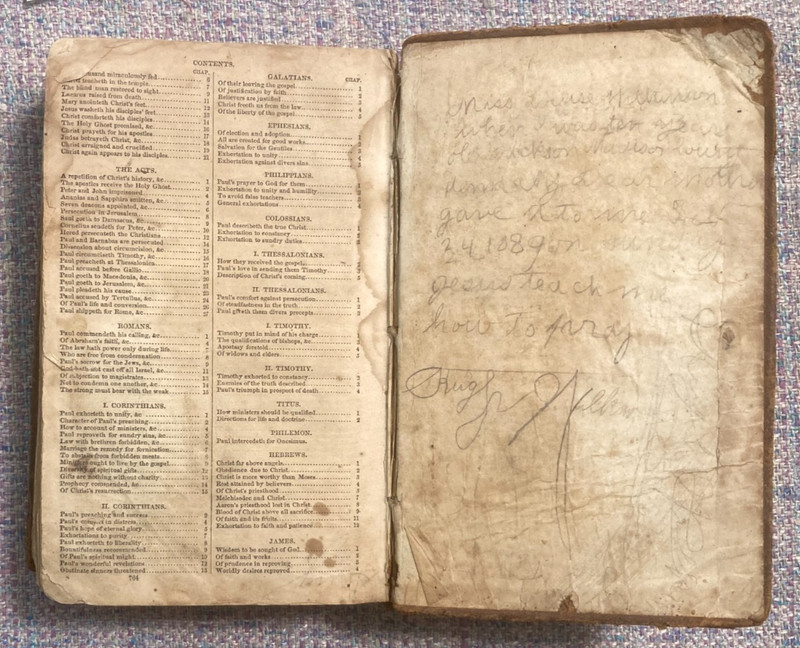 CONTENTS.
CHAP.
thousand miraculously fed 6
Christ teacheth in the temple 7
The blind man restored to sight 9
Lazarus raised from death 11
Mary anointeth Christ's feet 12
Jesus washeth his disciples' feet 13
Christ comforteth his disciples 14
The Holy Ghost promised, &c. 16
Christ prayeth for his apostles 17
Judas betrayeth Christ, &c. 18
Christ arraigned and crucified 19
Christ again appears to his disciples 21
THE ACTS.
A repetition of Christ's history, &c. 1
The apostles receive the Holy Ghost 2
Peter and John imprisoned 4
Ananias and Sapphira smitten, &c. 5
Seven deacons appointed, &c.
Persecution in Jerusalem 8
Saul goeth to Damascus, &c. 9
Cornelius sendeth for Peter, &c. 10
Herod persecuteth the Christians 12
Paul and Barnabas are persecuted 14
Dissension about circumcision, &c. 15
Paul circumciseth Timothy, &c. 16
Paul preacheth at Thessalonica 17
Paul accused before Gallio 18
Paul goeth to Macedonia, &c. 20
Paul goeth to Jerusalem, &c. 21
Paul pleadeth his cause 22
Paul accused by Tertullus, &c. 24
Of Paul's life and conversion 26
Paul shippeth for Rome, &c. 27
ROMANS.
Paul commendeth his calling, &c. 1
Of Abraham's faith, &c. 4
The law hath power only during life
Who are free from condemnation 8
Paul's sorrow for the Jews, &c. 9
God hath not cast off all Israel, &c. 11
Of subjection to magistrates 13
Not to condemn one another, &c. 14
The strong must bear with the weak 15
I. CORINTHIANS.
Paul exhorteth to unity, &c. 1
Character of Paul's preaching 2
How to account of ministers, &c. 4
Paul reproveth for sundry sins, &c.
Law with brethren forbidden, &c. 6
Marriage the remedy for fornication 7
To abstain from forbidden meats 8
Ministers ought to live by the gospel 9
Diversity of spiritual gifts 12
Gifts are nothing without charity 13
Prophecy commended, &c. 14
Of Christ's resurrection 15
II. CORINTHIANS.
Paul's preaching and success 3
Paul's comfort in distress 4
Paul's hope of eternal glory 5
Exhortations to purity 7
Paul exhorteth to liberality 8
Bountifulness recommended 9
Of Paul's spiritual might 10
Paul's wonderful revelations 12
Obstinate sinners threatened 13
704
GALATIANS. CHAP.
Of their leaving the gospel 1
Of justification by faith 2
Believers are justified 3
Christ freeth us from the law 4
Of the liberty of the gospel 5
EPHESIANS.
Of election and adoption 1
All are created for good works 2
Salvation for the Gentiles 3
Exhortation to unity 4
Exhortation against divers sins 5
PHILIPPIANS.
Paul's prayer to God for them 1
Exhortation to unity and humility 2
To avoid false teachers 3
General exhortations 4
COLOSSIANS.
Paul describeth the true Christ 1
Exhortation to constancy 2
Exhortation to sundry duties 3
I. THESSALONIANS.
How they received the gospel 1
Paul's love in sending them Timothy 3
Description of Christ's coming 5
II. THESSALONIANS.
Paul's comfort against persecution 1
Of steadfastness in the truth 2
Paul giveth them divers precepts 3
I. TIMOTHY.
Timothy put in mind of his charge 1
The qualifications of bishops, &c. 3
Apostasy foretold 4
Of widows and elders 5
II. TIMOTHY.
Timothy exhorted to constancy 1
Enemies of the truth described 3
Paul's triumph in prospect of death 4
TITUS.
How ministers should be qualified 1
Directions for life and doctrine 2
PHILEMON.
Paul intercedeth for Onesimus.
HEBREWS.
Christ far above angels 1
Obedience due to Christ 2
Christ is more worthy than Moses 3
Rest attained by believers 4
Of Christ's priesthood 5
Melchisedec and Christ 7
Aaron's priesthood lost in Christ 8
Blood of Christ above all sacrifice 9
Of faith and its fruits 11
Exhortation to faith and patience 12
JAMES.
Wisdom to be sought of God 1
Of faith and works 2
Of prudence in reproving 3
Worldly desires reproved 4
Miss
gave it to me
24 189
Jesus teach me
how to pray